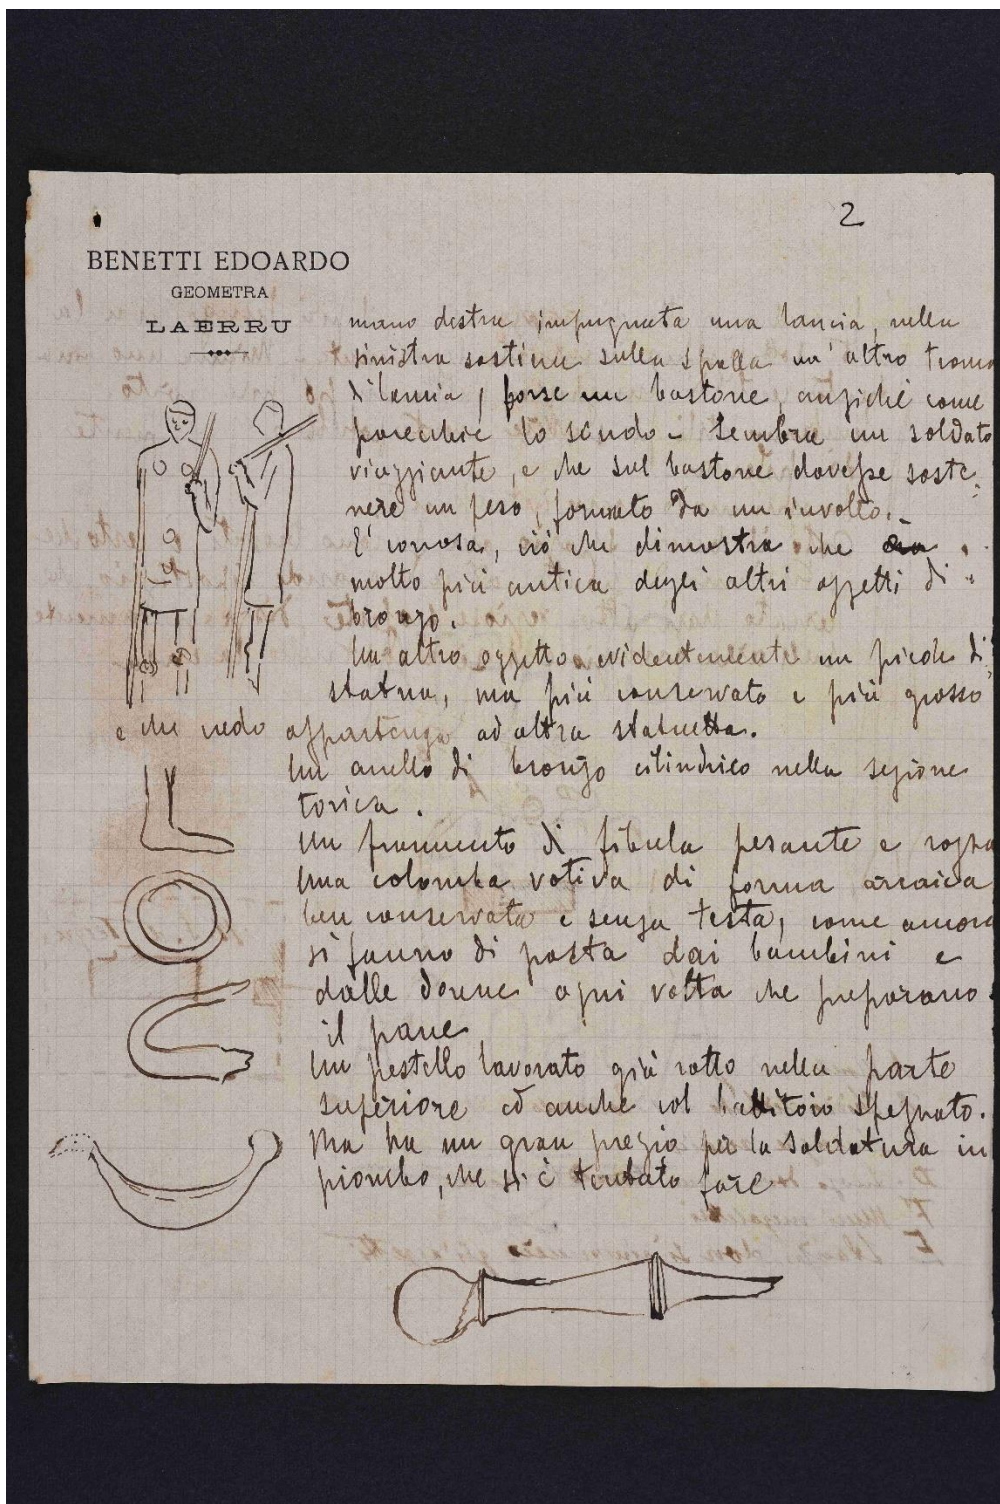 2
BENETTI EDOARDO
GEOMETRA
LAERRU
mano destra impugnata una lancia, nella
sinistra sostiene sulla spalla un' altro
di lancia, forse un bastone, anzichè come
parecchie lo scudo - Sembra un soldato
viaggiante, e che sul bastone dovesse soste-
nere un peso, formato da un involto. -
E' corrosa, ciò che dimostra che
molto più antica degli altri oggetti di
bronzo.
Un altro oggetto evidentemente un piede di
statua, ma più conservato e più grosso
e che credo appartenga ad altra statuetta.
Un anello di bronzo cilindrico nella sezione
torica.
Un frammento di fibula pesante e rozza
Una colomba votiva di forma arcaica
ben conservata e senza testa, come ancora
si fanno di pasta dai bambini e
dalle donne ogni volta che preparano
il pane
Un pestello lavorato già rotto nella parte
superiore ed anche col battitoio
Ma ha un gran pregio per la saldatura in
piombo, che si è tentato fare